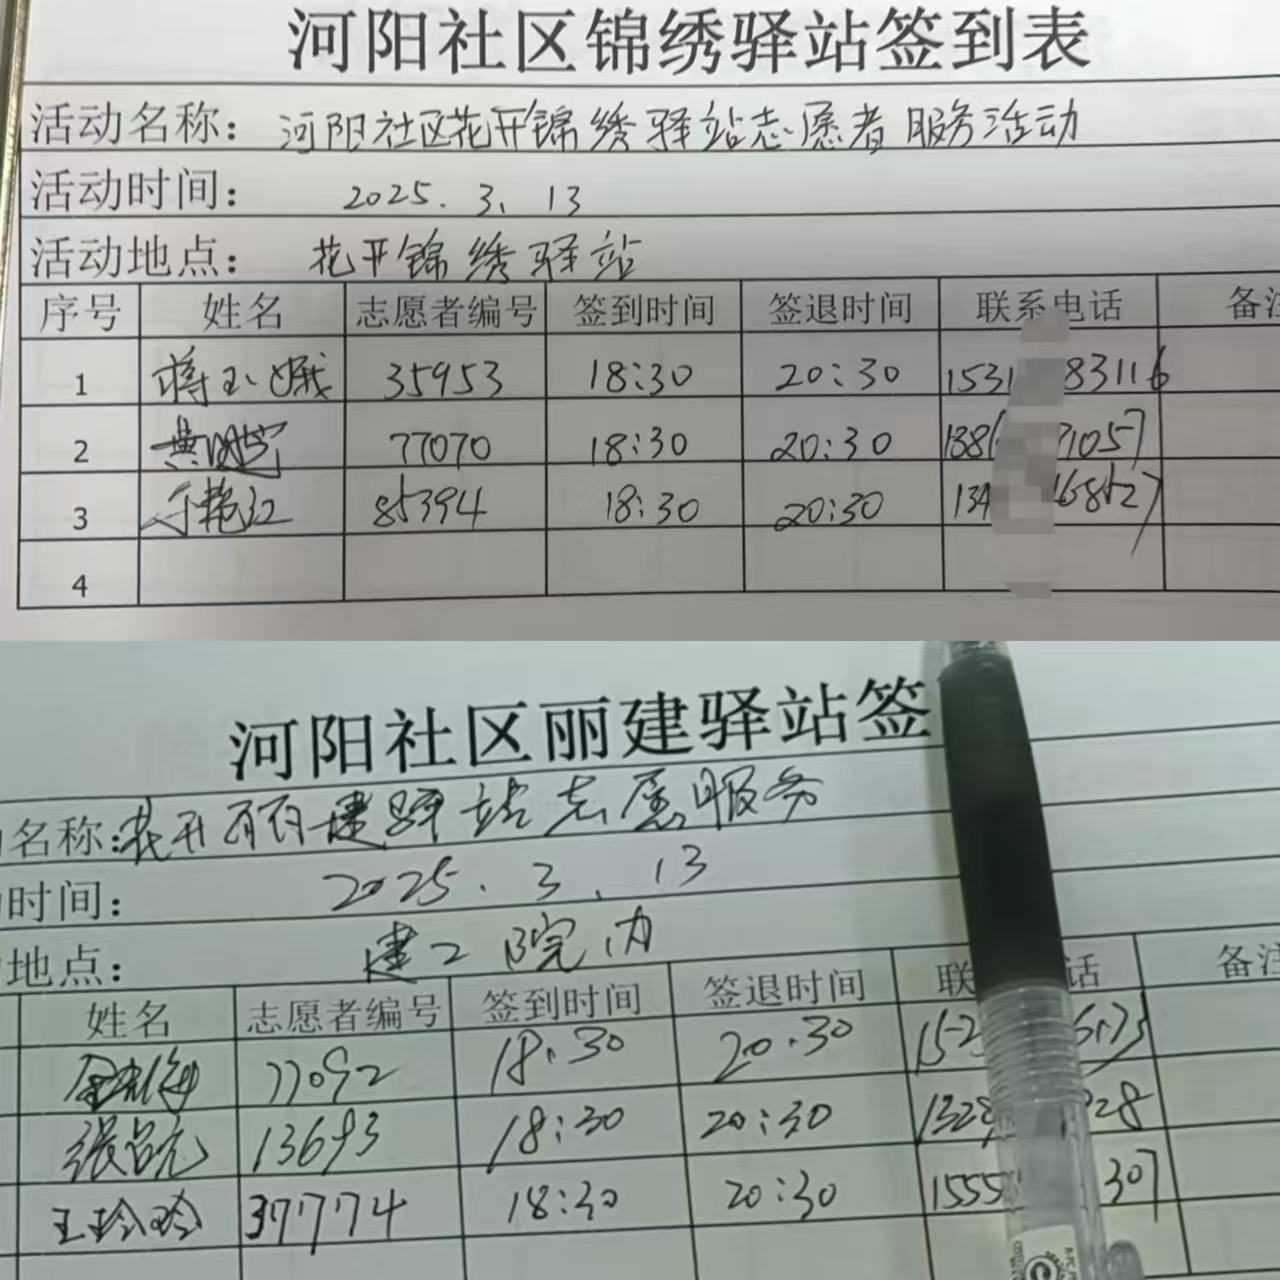 河阳社区锦绣驿站签到表
活动名称：河阳社区花开锦绣驿站志愿者服务活动
活动时间：2025.3.13
活动地点：花开锦绣驿站
序号 姓名 志愿者编号 签到时间 签退时间 联系电话 备注
1 蒋玉娥 35953 18:30 20:30 1531 83116
2 77070 18:30 20:30 138 71057
3 于艳红 85394 18:30 20:30 134 168527
4
河阳社区丽建驿站签
名称：花开丽建驿站志愿服务
时间：2025.3.13
地点：建工院内
姓名 志愿者编号 签到时间 签退时间 联 话 备注
77092 18:30 20:30 152
13693 18:30 20:30 1328 928
王玲玲 37774 18:30 20:30 1555 307